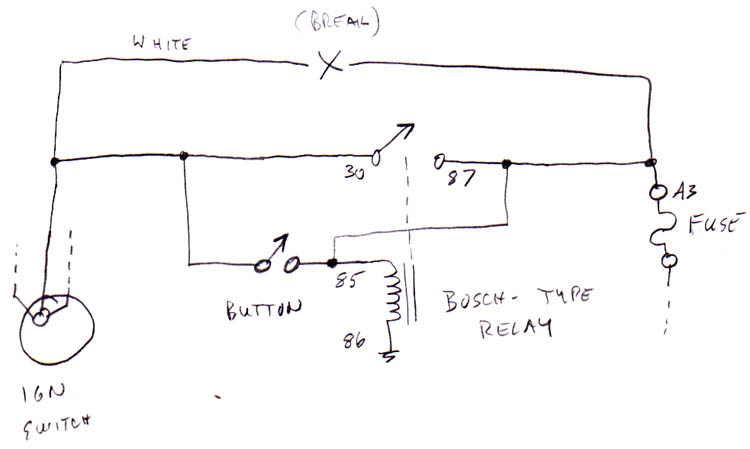 (BREAK)
WHITE
30
87
A3
FUSE
85
BUTTON
BOSCH-TYPE
RELAY
86
IGN
SWITCH